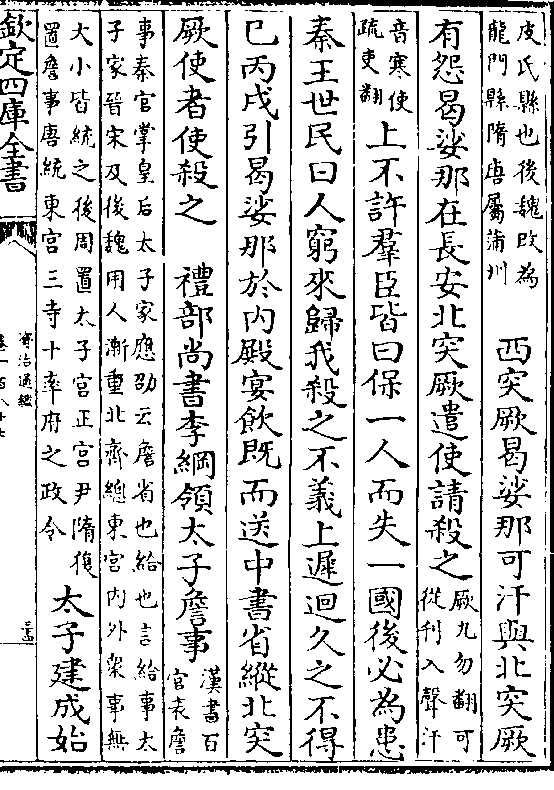 皮氏縣也後魏改為
龍門縣隋唐屬蒲州
西突厥曷娑那可汗與北突厥
有怨曷娑那在長安北突厥遣使請殺之
厥九勿翻可
從刋入聲汗
音寒使
疏吏翻
上不許羣臣皆曰保一人而失一國後必為患
秦王世民曰人窮來歸我殺之不義上遲迴久之不得
已丙戌引曷娑那於内殿宴飲既而送中書省縱北突
厥使者使殺之
禮部尚書李綱領太子詹事
漢書百
官表詹
事秦官掌皇后太子家應劭云詹省也給也言給事太
子家晉宋及後魏用人漸重北齊總東宫内外衆事無
大小皆統之後周置太子宫正宫尹隋復
置詹事唐統東宫三寺十率府之政令
太子建成始
欽定四庫全書
資治通鑑
卷一百八十七